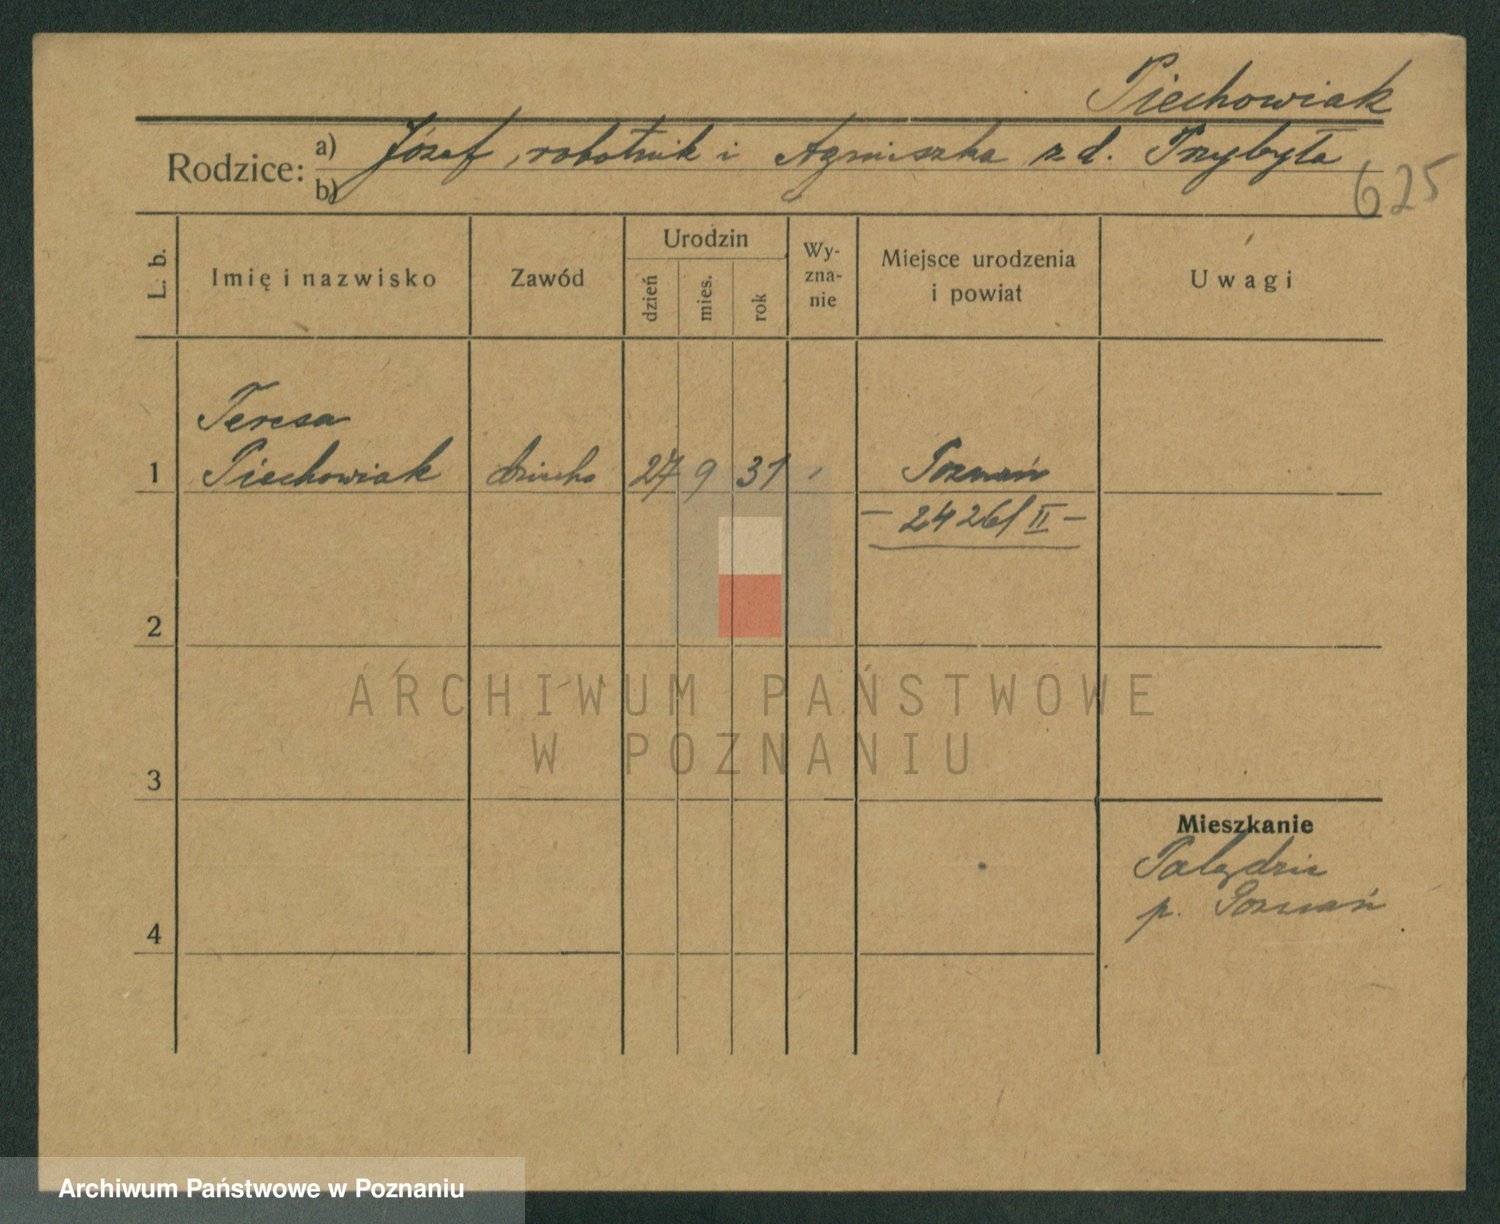 Piechowiak
Rodzice: a) Józef, robotnik i Agnieszka z d. Przybyła
b)
625
L. b.
Imię i nazwisko
Zawód
Urodzin
dzień
mies.
rok
Wy-
zna-
nie
Miejsce urodzenia
i powiat
Uwagi
Teresa
1 Piechowiak dziecko 27 9 31 Poznań
- 2426/II -
2
3
4
Mieszkanie
Palędzie
p. Poznań
ARCHIWUM PAŃSTWOWE
W POZNANIU
Archiwum Państwowe w Poznaniu